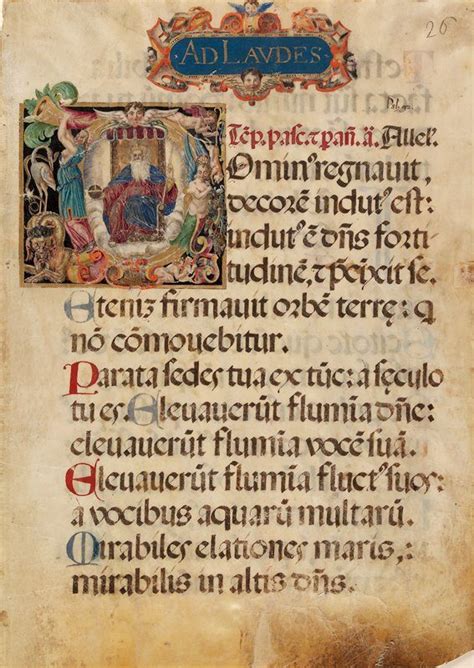 AD LAVDES
26
Tēp. pasc. τ p añ. ā. Allel.
Domin⁹ regnauit,
decorē indut⁹ est:
indut⁹ ē dñs forti
tudinē, τ p̄cīxit se.
Eteniꝫ firmauit orbē terrę: q
nō cōmouebitur.
Parata sedes tua ex tūc: a sęculo
tu es. Eleuauerūt flumīa dñe:
eleuauerūt flumīa vocē suā.
Eleuauerūt flumīa fluct⁹ suos:
a vocibus aquarū multarū.
Mirabiles elationes maris,:
mirabilis in altis dñs.